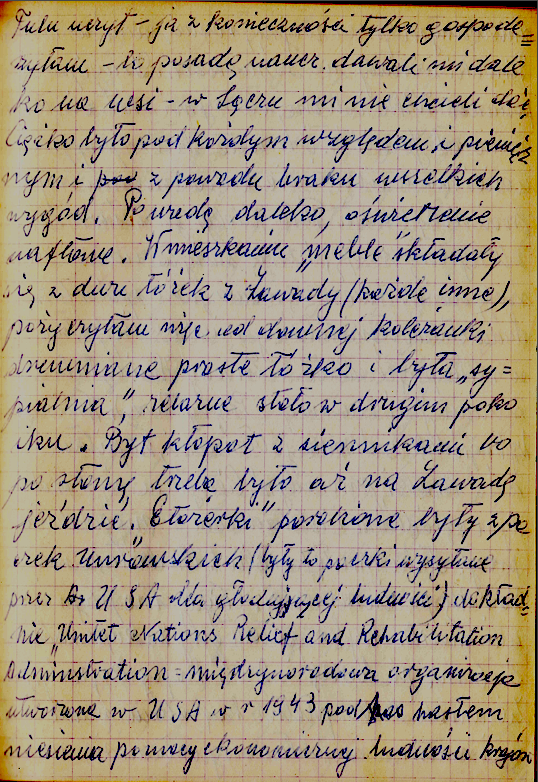 Tulu uczył - ja z konieczności tylko gospoda=
rzyłam - bo posadę naucz. dawali mi dale
ko na wsi - w Sączu mi nie chcieli dać.
Ciężko było pod każdym względem, i pienięż
nym i z powodu braku wszelkich
wygód. Po wodę daleko, oświetlenie
naftowe. W mieszkaniu "meble" składały
się z dwu łóżek z Zawady (każde inne),
pożyczyłam  od dawnej koleżanki
drewniane proste łóżko i była "sy=
pialnia",  stół w drugim poko
iku. Był kłopot z siennikami bo
po słomę trzeba było aż na Zawadę
jeździć. "Etażerki" porobione były z pa
czek Unrowskich (były to paczki wysyłane
przez USA dla głodującej ludności) dokład=
nie "Unitet Nations Relief and Rehabilitation
Adminstration = międzynarodowa organizacja
utworzona w USA w r 1943 pod hasłem
niesienia pomocy ekonomicznej ludności krajów